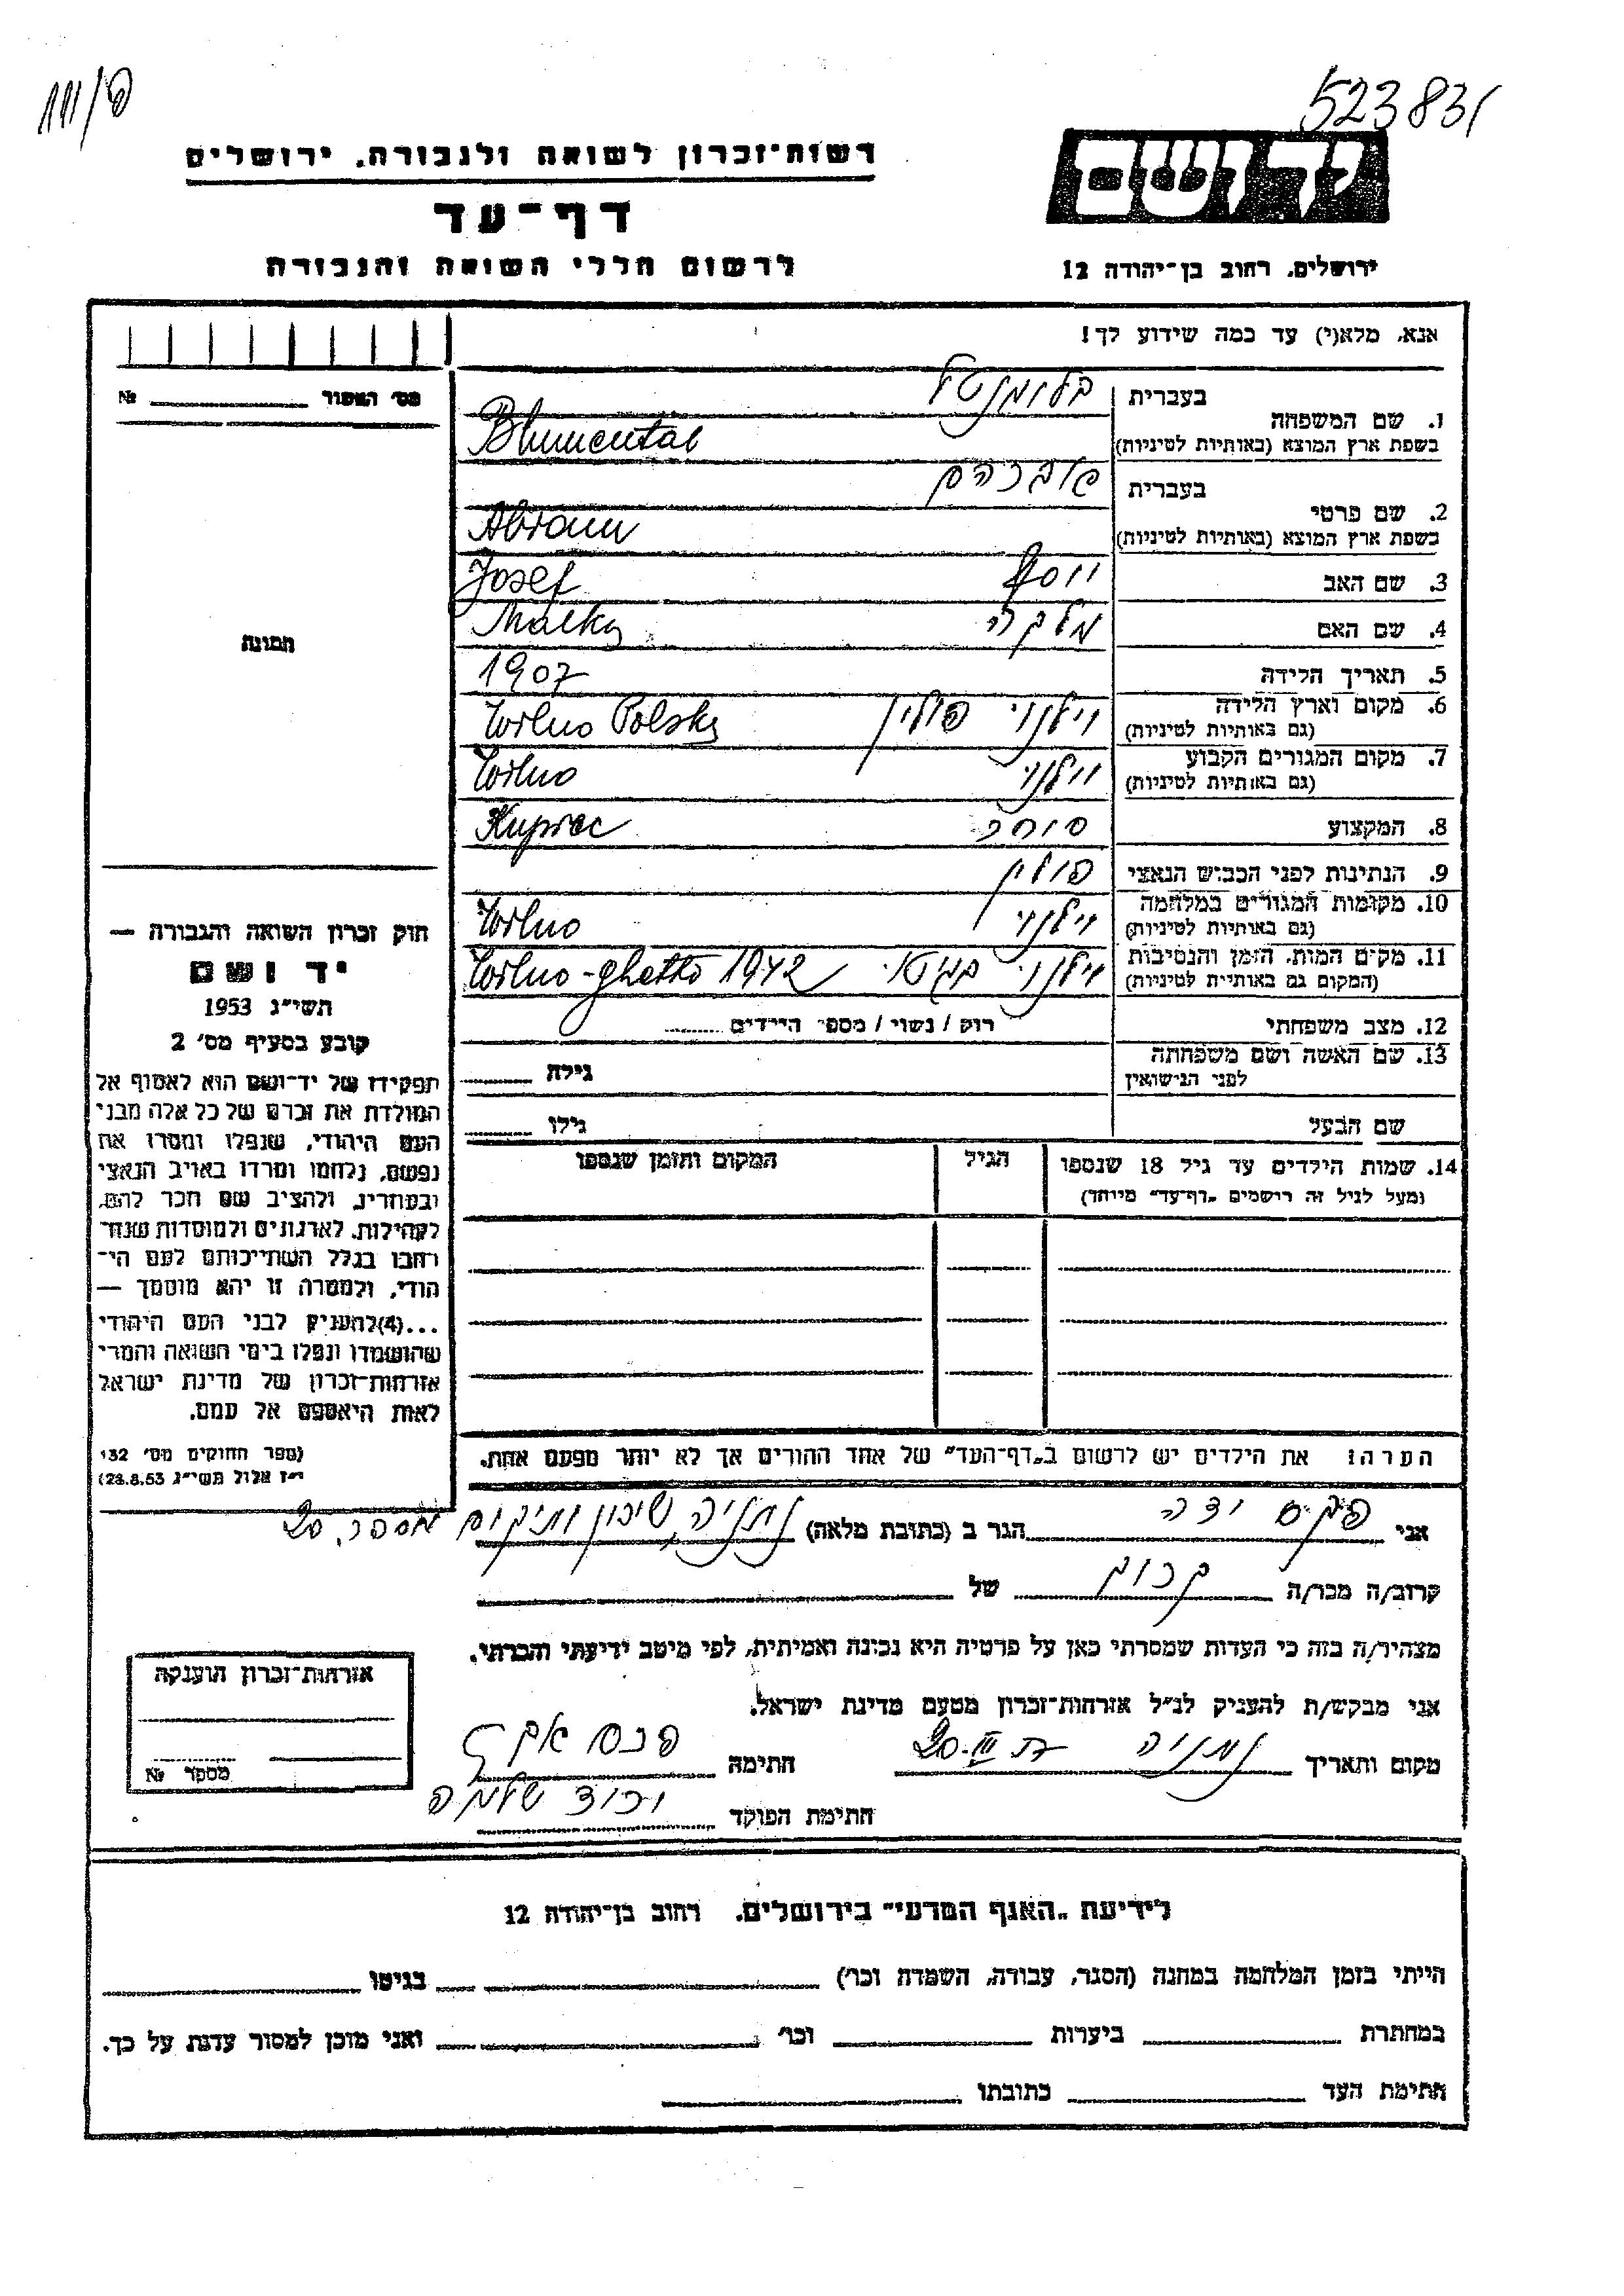 523831
פ/ווו
יד ושם
רשות־זכרון לשואה ולגבורה. ירושלים
דף־עד
לרשום חללי השואה והגבורה
ירושלים. רחוב בן־יהודה 12
אנא, מלא(י) עד כמה שידוע לך!
מס׳ השפור №
1. שם המשפחה
בעברית בלומנטל
בשפת ארץ המוצא (באותיות לטיניות) Blumental
2. שם פרטי
בעברית אברהם
בשפת ארץ המוצא (באותיות לטיניות) Abram
3. שם האב יוסף Josef
4. שם האם מלכה Malka
5. תאריך הלידה 1907
6. מקום וארץ הלידה וילנו פולין Wilno Polska
(גם באותיות לטיניות)
7. מקום המגורים הקבוע וילנו Wilno
(גם באותיות לטיניות)
8. המקצוע סוחר Kupiec
9. הנתינות לפני הכבוש הנאצי פולין
10. מקומות המגורים במלחמה וילנו Wilno
(גם באותיות לטיניות)
11. מקום המות, הזמן והנסיבות וילנו בגטו Wilno-ghetto 1942
(המקום גם באותיות לטיניות)
12. מצב משפחתי רוק / נשוי / מספר הילדים
13. שם האשה ושם משפחתה
לפני הנישואין גילה
שם הבעל גילו
14. שמות הילדים עד גיל 18 שנספו הגיל המקום והזמן שנספו
(מעל לגיל זה רושמים „דף־עד״ מיוחד)
תמונה
חוק זכרון השואה והגבורה —
יד ושם
תשי״ג 1953
קובע בסעיף מס׳ 2
תפקידו של יד־ושם הוא לאסוף אל
המולדת את זכרם של כל אלה מבני
העם היהודי, שנפלו ומסרו את
נפשם, נלחמו ומרדו באויב הנאצי
ובעוזריו, ולהציב שם וזכר להם,
לקהילות, לארגונים ולמוסדות שנח־
רבו בגלל השתייכותם לעם הי־
הודי, ולמטרה זו יהא מוסמך —
...(4)להעניק לבני העם היהודי
שהושמדו ונפלו בימי השואה והמרי
אזרחות־זכרון של מדינת ישראל
לאות היאספם אל עמם.
(ספר החוקים מס׳ 132
י״ז אלול תשי״ג 28.8.53)
הערה: את הילדים יש לרשום ב„דף־העד״ של אחד ההורים אך לא יותר מפעם אחת.
אני הגר ב (כתובת מלאה) נתניה, שיכון ותיקים מספר 20
קרוב/ה מכר/ה קרוב של
מצהיר/ה בזה כי העדות שמסרתי כאן על פרטיה היא נכונה ואמיתית, לפי מיטב ידיעתי והכרתי.
אני מבקש/ת להעניק לנ״ל אזרחות־זכרון מטעם מדינת ישראל.
מקום ותאריך נתניה 20.III חתימה
חתימת הפוקד
אזרחות־זכרון הוענקה
מספר №
לידיעת „האגף המדעי״ בירושלים. רחוב בן־יהודה 12
הייתי בזמן המלחמה במחנה (הסגר, עבודה, השמדה וכו׳) בגיטו
במחתרת ביערות וכו׳ ואני מוכן למסור עדות על כך.
חתימת העד כתובתו